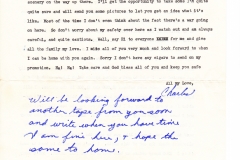 scenery on the way up there. I'll get the opportunity to take some I'm quite
sure and will send you some pictures to let you get an idea what it's
like. Most of the time I don't even think about the fact there's a war going
on here. So don't worry about my safety over here as I watch out and am always
careful, and quite careful. Well, say HI to everyone for me and give
all the family my love. I miss all of you very much and look forward to when
I can be home with you again. Sorry I don't have any cigars to send on my
promotion. Ha! Ha! Take care and God bless all of you and keep you safe
All my love,
Charles
Will be looking forward to
another tape from you soon
and write when you have time
I am fine here, & hope the
same to home.